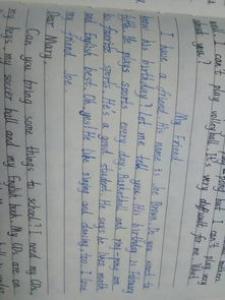 I can't play volleyball. It's very difficult for me. What
about you?
My Friend
I have a friend. His name is Joe Brown. Do you want to
know his birthday? Let me tell you. His birthday is February
He plays sports every day. Basketball and ping-pong are
his favorite sports. He's a good student. He says he likes math
and English best. Oh, yes! He likes singing and dancing, too. I love
my friend Joe.
Dear Mary,
Can you bring some things to school? I need my CDs,
my keys, my soccer ball and my English book. My CDs are on